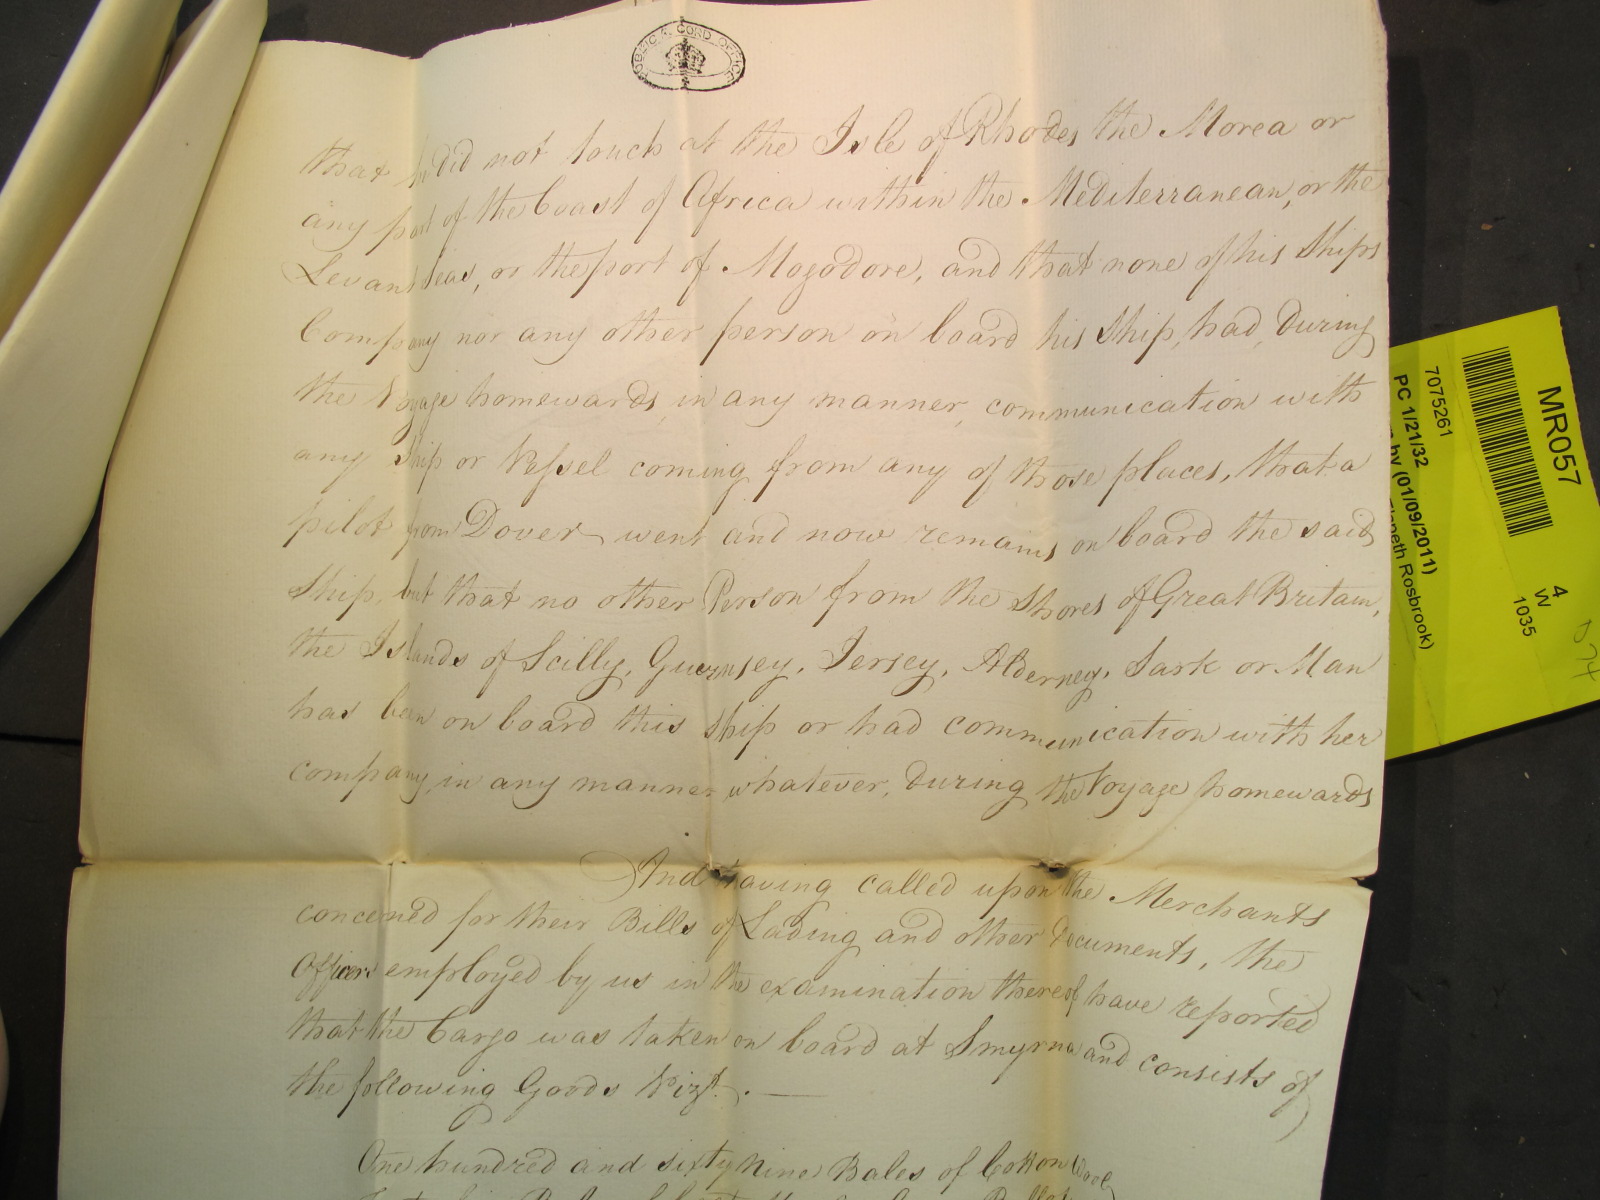 PUBLIC RECORD OFFICE
that he did not touch at the Isle of Rhodes the Morea or
any part of the Coast of Africa within the Mediterranean, or the
Levant Seas, or the port of Mogodore, and that none of his Ships
Company nor any other person on board his Ship, had, during
the Voyage homewards, in any manner, communication with
any Ship or Vessel coming from any of those places, that a
pilot from Dover went and now remains on board the said
Ship, but that no other Person from the Shores of Great Britain,
the Islands of Scilly, Guernsey, Jersey, Alderney, Sark or Man
has been on board this ship or had communication with her
company, in any manner whatever, during the Voyage homewards
And having called upon the Merchants
concerned for their Bills of Lading and other documents, the
Officers employed by us in the examination thereof have reported
that the Cargo was taken on board at Smyrna and consists of
the following Goods Vizt. —
One hundred and sixty nine Bales of Cotton Wool
MR057
4
W
1035
7075261
PC 1/21/32
by (01/09/2011)
Rosbrook)